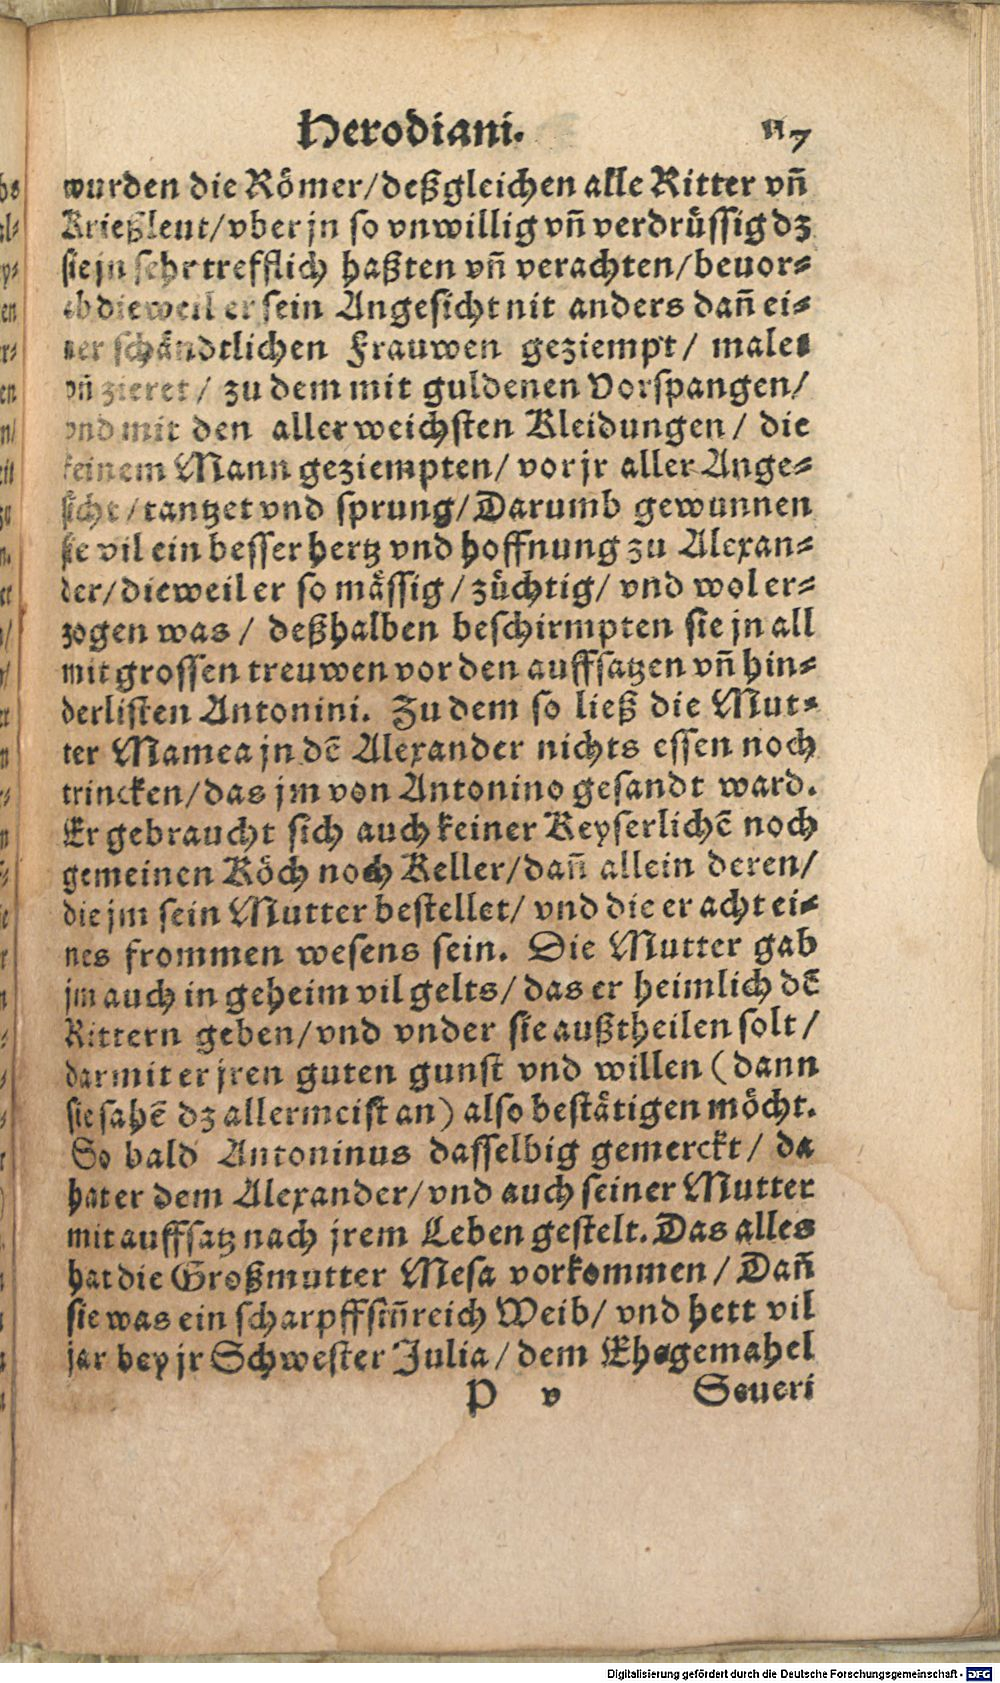 Herodiani. 117
wurden die Römer/deßgleichen alle Ritter vñ
Krießleut/vber jn so vnwillig vñ verdrüssig dz
sie jn sehr trefflich haßten vñ verachten/beuor⸗
ab dieweil er sein Angesicht nit anders dañ ei⸗
ner schändtlichen Frauwen geziempt/ malet
vñ zieret/ zu dem mit guldenen Vorspangen/
vnd mit den aller weichsten Kleidungen/ die
keinem Mann geziempten/ vor jr aller Ange⸗
sicht/tantzet vnd sprung/Darumb gewunnen
sie vil ein besser hertz vnd hoffnung zu Alexan⸗
der/dieweil er so mässig/züchtig/ vnd wol er⸗
zogen was/ deßhalben beschirmpten sie jn all
mit grossen treuwen vor den auffsatzen vñ hin⸗
derlisten Antonini. Zu dem so ließ die Mut⸗
ter Mamea jn dē Alexander nichts essen noch
trincken/das jm von Antonino gesandt ward.
Er gebraucht sich auch keiner Keyserlichē noch
gemeinen Köch noch Keller/dañ allein deren/
die jm sein Mutter bestellet/ vnd die er acht ei⸗
nes frommen wesens sein. Die Mutter gab
jm auch in geheim vil gelts/das er heimlich dē
Rittern geben/vnd vnder sie außtheilen solt/
darmit er jren guten gunst vnd willen (dann
sie sahē dz allermeist an) also bestätigen möcht.
So bald Antoninus dasselbig gemerckt/ da
hat er dem Alexander/vnd auch seiner Mutter
mit auffsatz nach jrem Leben gestelt. Das alles
hat die Großmutter Mesa vorkommen/Dañ
sie was ein scharpffsiñreich Weib/ vnd hett vil
jar bey jr Schwester Julia/dem Ehegemahel
P v Seueri
Digitalisierung gefördert durch die Deutsche Forschungsgemeinschaft - DFG